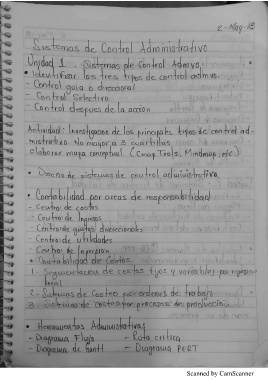 2-May-18
Sistemas de Control Administrativo
Unidad 1. Sistemas de Control Admvo.
• Identificar los tres tipos de control admvo.
- Control guia o direccional
- Control Selectivo
- Control despues de la acción
Actividad: Investigación de los principales tipos de control ad-
mistrativo No mayor a 3 cuartillas
elaborar mapa conceptual (Cmap Tools, Mindmap, etc.)
• Diseño de sistemas de control administrativo.
• Contabilidad por areas de responsabilidad
- Centro de costos
- Centro de Ingresos
- Centro de gastos discrecionales
- Centro de utilidades
- Centro de Inversion
• Contabilidad de Costos
1- Segmentacion de costos fijos y variables por
2- Sistemas de Costeo por ordenes de trabajo
3- Sistemas de costeo por procesos de producción
• Herramientas Administrativas
- Diagrama Flujo - Ruta critica
- Diagrama de Gantt - Diagrama PERT
Scanned by CamScanner